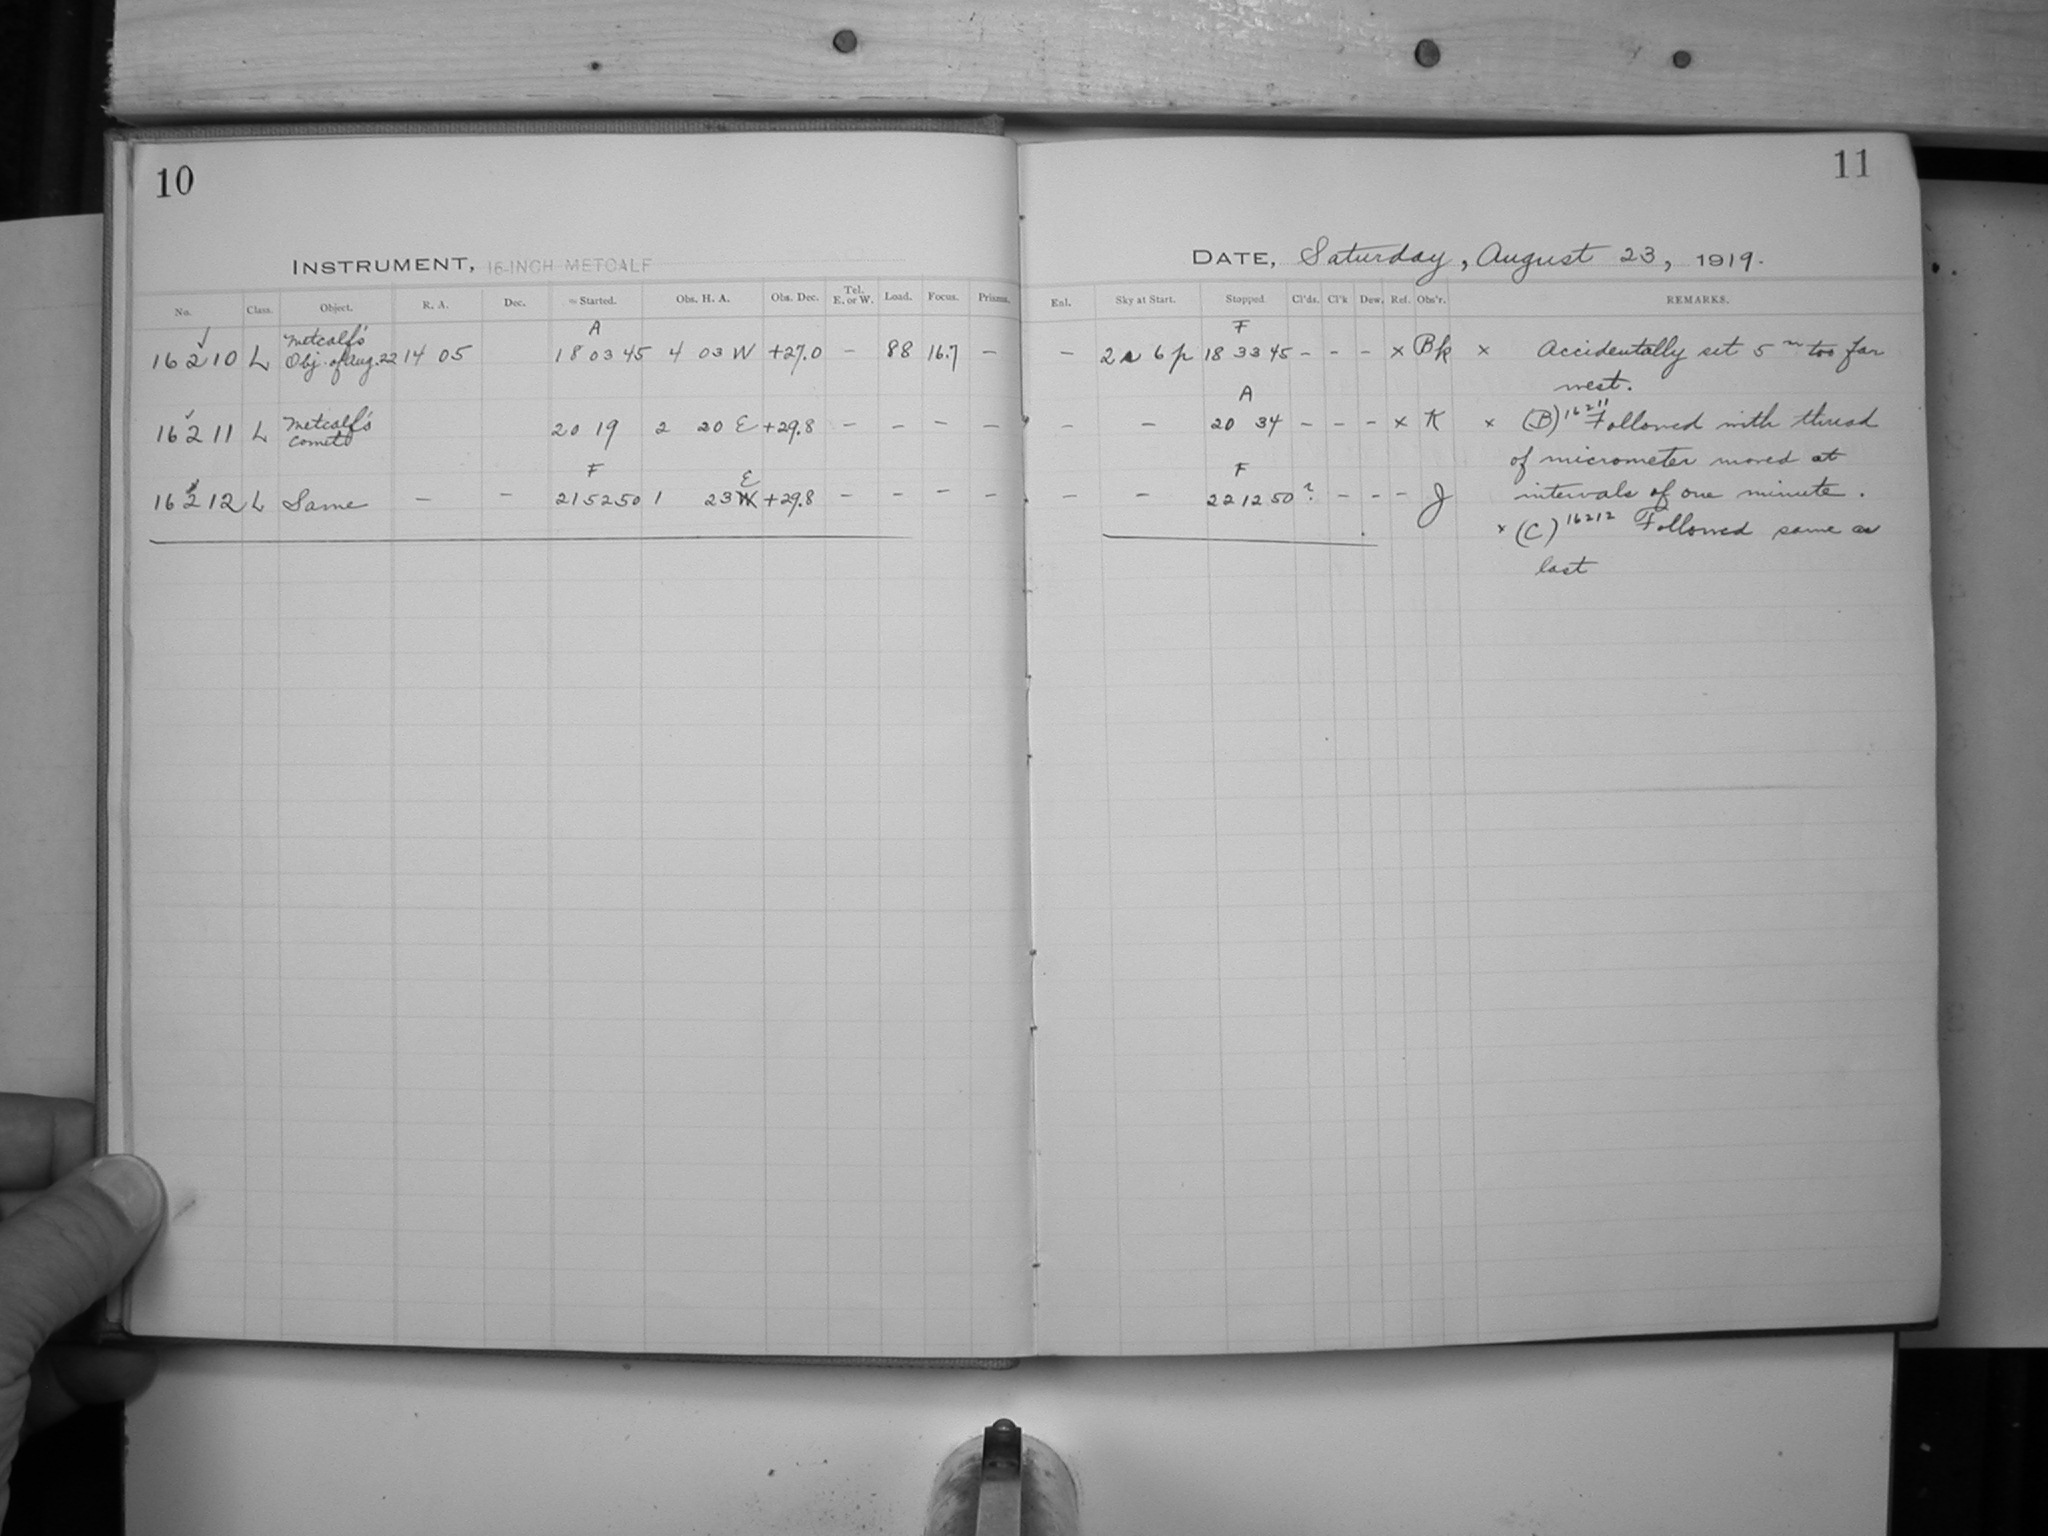 10
INSTRUMENT, 16-INCH METCALF
No. Class. Object. R. A. Dec. Started. Obs. H. A. Obs. Dec. Tel. E. or W. Load. Focus. Prisms.
16210 L Metcalf's Obj. of Aug. 22 14 05 A 18 03 45 4 03 W +27.0 – 88 16.7 –
16211 L Metcalf's Comet 20 19 2 20 E +29.8 – – – –
16212 L Same – – F 21 52 50 1 23 E +29.8 – – – –
11
DATE, Saturday, August 23, 1919.
Enl. Sky at Start. Stopped. Cl'ds. Cl'k Dew. Ref. Obs'r. REMARKS.
– 2 6 p F 18 33 45 – – – × Bk × Accidentally set 5 m too far
west.
– – A 20 34 – – – × K × (B) 16211 Followed with thread
of micrometer moved at
– – F 22 12 50 ? – – – J intervals of one minute.
× (C) 16212 Followed same as
last